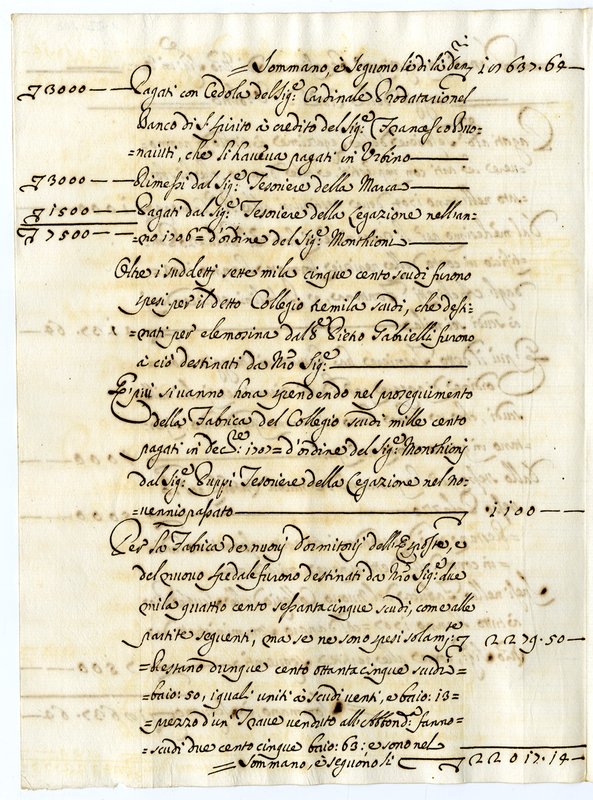 = Sommano, e seguono le di là den. 17637.64 —
3000 — Pagati con Cedola del Sig.e Cardinale Prodatario nel
Banco di S. spirito à credito del Sig.e Francesco Buo-
=naiuti, che si haueua pagati in Vrbino —
3000 — Rimessi dal Sig.e Tesoriere della Marca —
1500 — Pagati dal Sig.e Tesoriere della Legazione nell'an-
7500 — =no 1706 = d'ordine del Sig.e Monthioni —
Oltre i suddetti sette mila cinque cento scudi furono
spesi per il detto Collegio tremila scudi, che desti-
=nati per elemosina dal Pietro Gabrielli furono
à ciò destinati da Nro Sig.e —
E più si uanno hora spendendo nel proseguimento
della Fabrica del Collegio scudi mille cento
pagati in Dec.re 1707 = d'ordine del Sig.e Monthionj
dal Sig.e Puppi Tesoriere della Legazione nel no-
=uennio passato — 1100 —
Per la Fabrica de nuouj Dormitorij dell'Esposte, e
del nuouo spedale furono destinati da Nro Sig.e due
mila quattro cento sessanta cinque scudi, come alle
partite seguenti, ma se ne sono spesi solam.te 2279.50 —
=Restano dunque cento ottanta cinque scudi =
=baio: 50, i quali uniti à scudi uenti, e baio: 13 =
=prezzo d'un Traue uenduto all'Abbond.a fanno =
=scudi due cento cinque baio: 63: e sono nel
= Sommano, e seguono li 22017.14 —